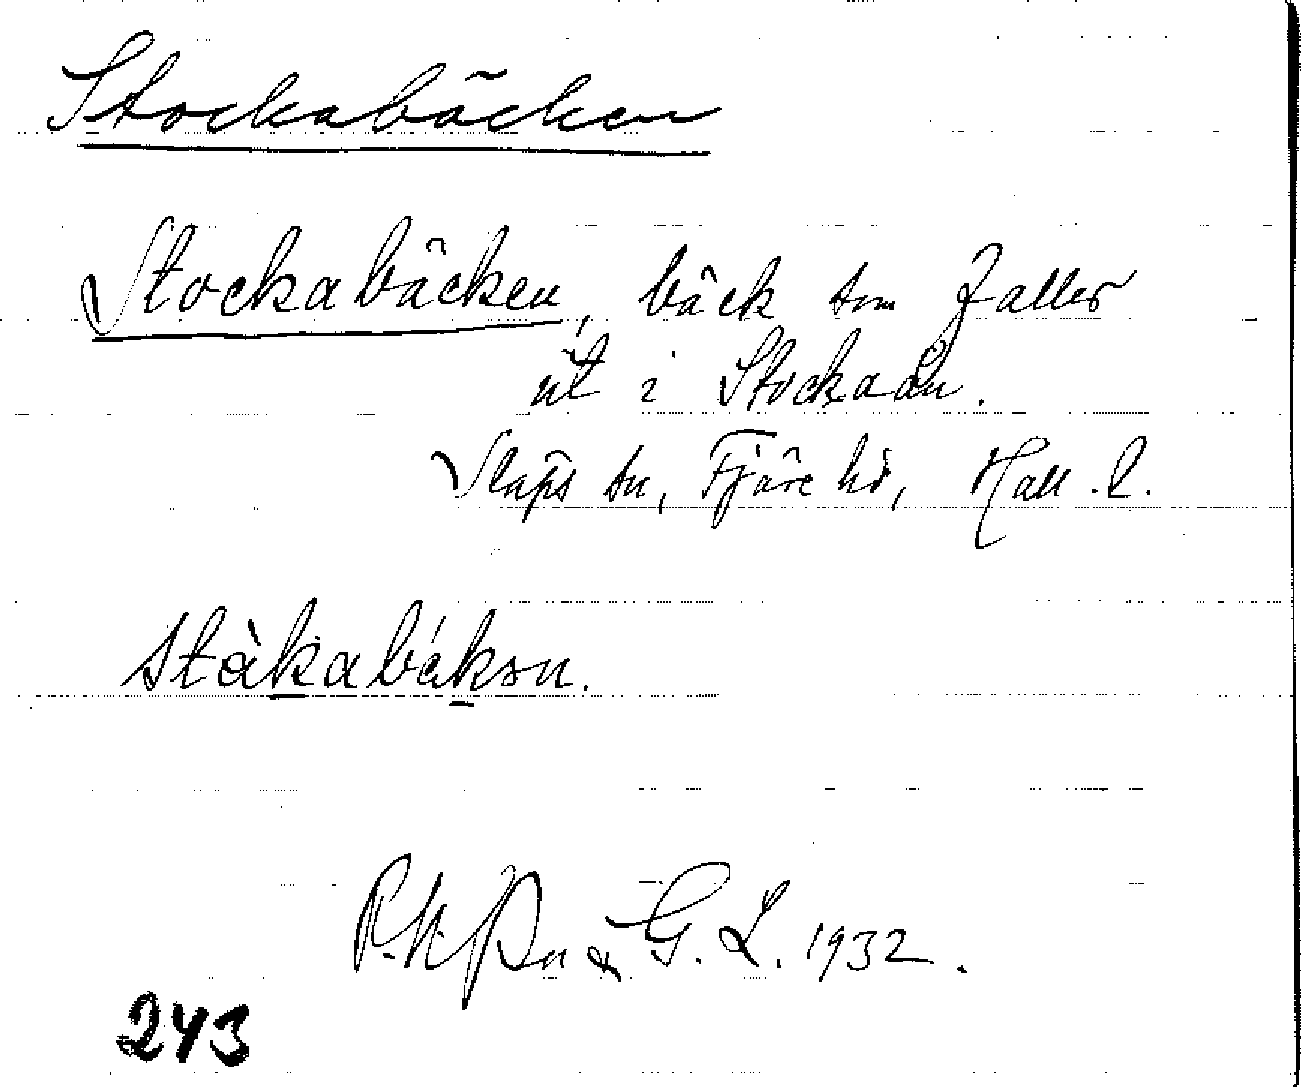 Stockabäcken
Stockabäcken, bäck som faller
ut i Stockaån.
Släps sn, Fjäre hd, Hall. l.
stàkabákən.
& G. L. 1932.
243